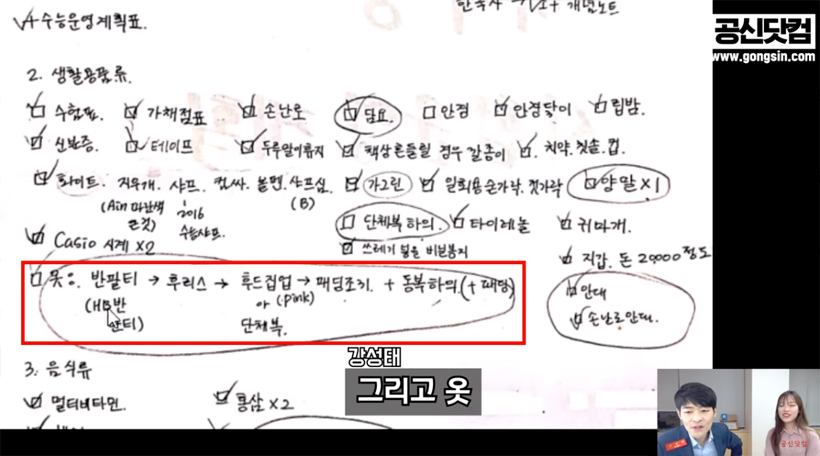 수능운영계획표.
한국사 개념노트
공신닷컴
www.gongsin.com
2. 생활용품류.
수험표. 가채점표 손난로 담요. 안경 안경닦이 립밤.
신분증. 테이프 두루말이휴지 책상흔들릴 경우 깔종이 치약. 칫솔. 컵.
화이트. 지우개. 샤프. 컴싸. 볼펜. 샤프심. 가그린 일회용숟가락. 젓가락 양말 X 1
(Ain 파란색 큰것) 2016 수능샤프. (B)
단체복 하의. 타이레놀 귀마개.
Casio 시계 X2 쓰레기 넣을 비닐봉지
지갑. 돈 20000 정도
옷: 반팔티 → 후리스 → 후드집업 → 패딩조끼. + 동복하의. (+ 패딩)
(HB반팔티) or (pink) 단체복.
안대
손난로안대.
3. 음식류
멀티비타민. 홍삼 X2
강성태
그리고 옷
공신닷컴